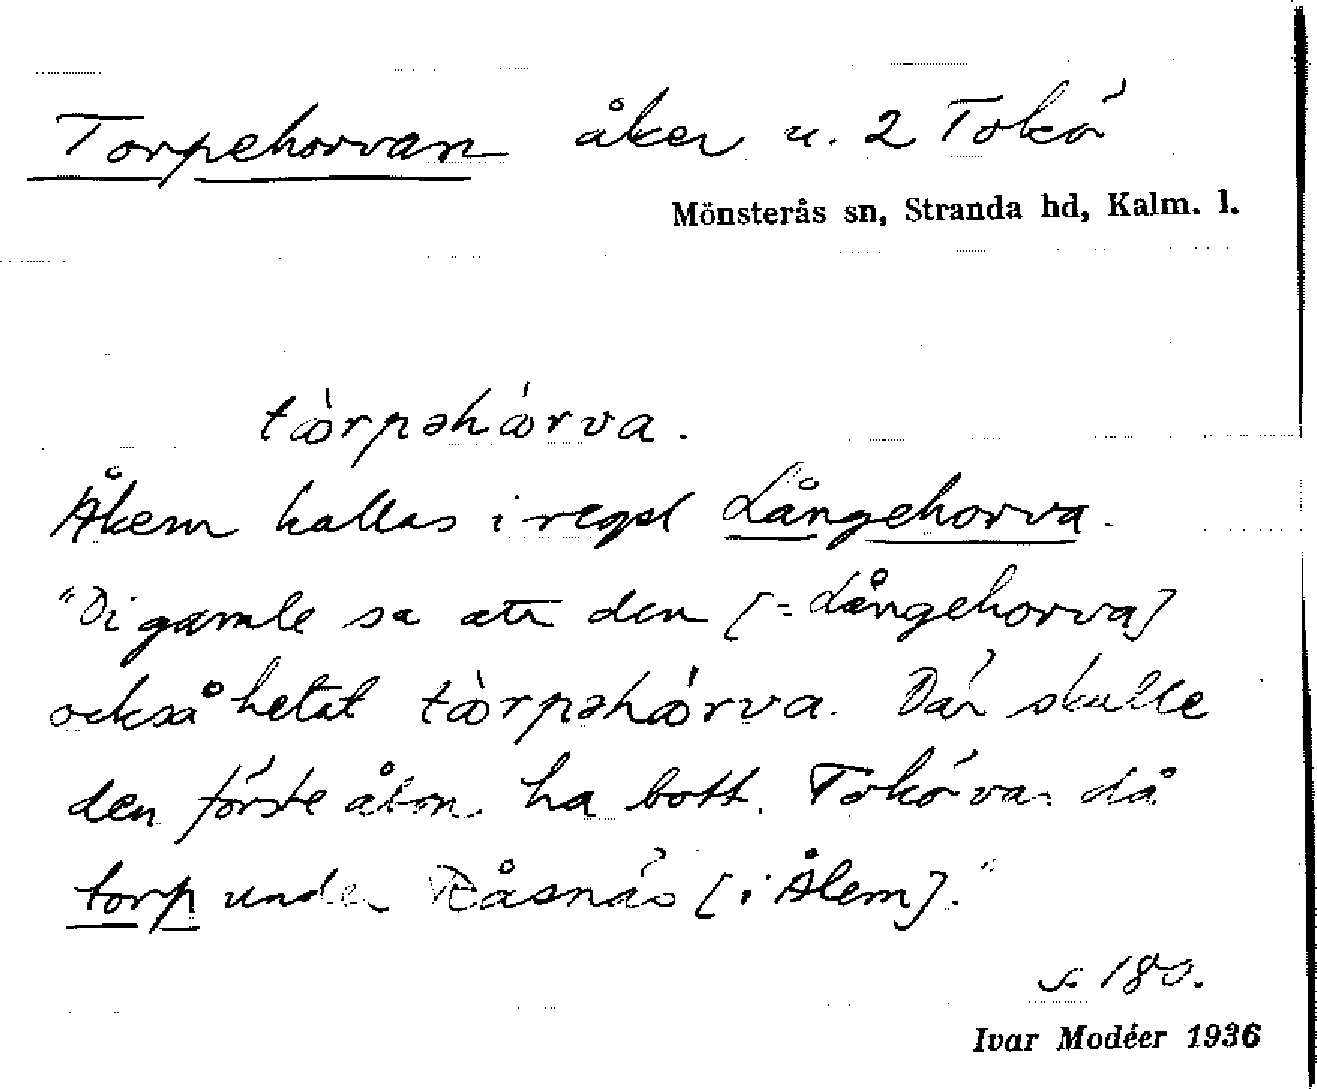 Torpehorvan åker u. 2 Tokö
Mönsterås sn, Stranda hd, Kalm. l.
tòrpəhórva.
Åkern kallas i regel Långehorva.
"Di gamle sa att den [= Långehorva]
också hetat tòrpəhórva. Där skulle
den förste åbon ha bott. Tokö var då
torp under Råsnäs [i Ålem]."
s. 180.
Ivar Modéer 1936